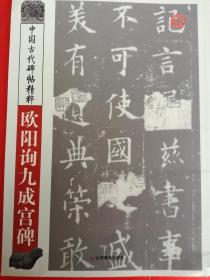 中国古代碑帖精粹
欧阳询九成宫碑
记言属兹书事
不可使国盛
美有典策敢